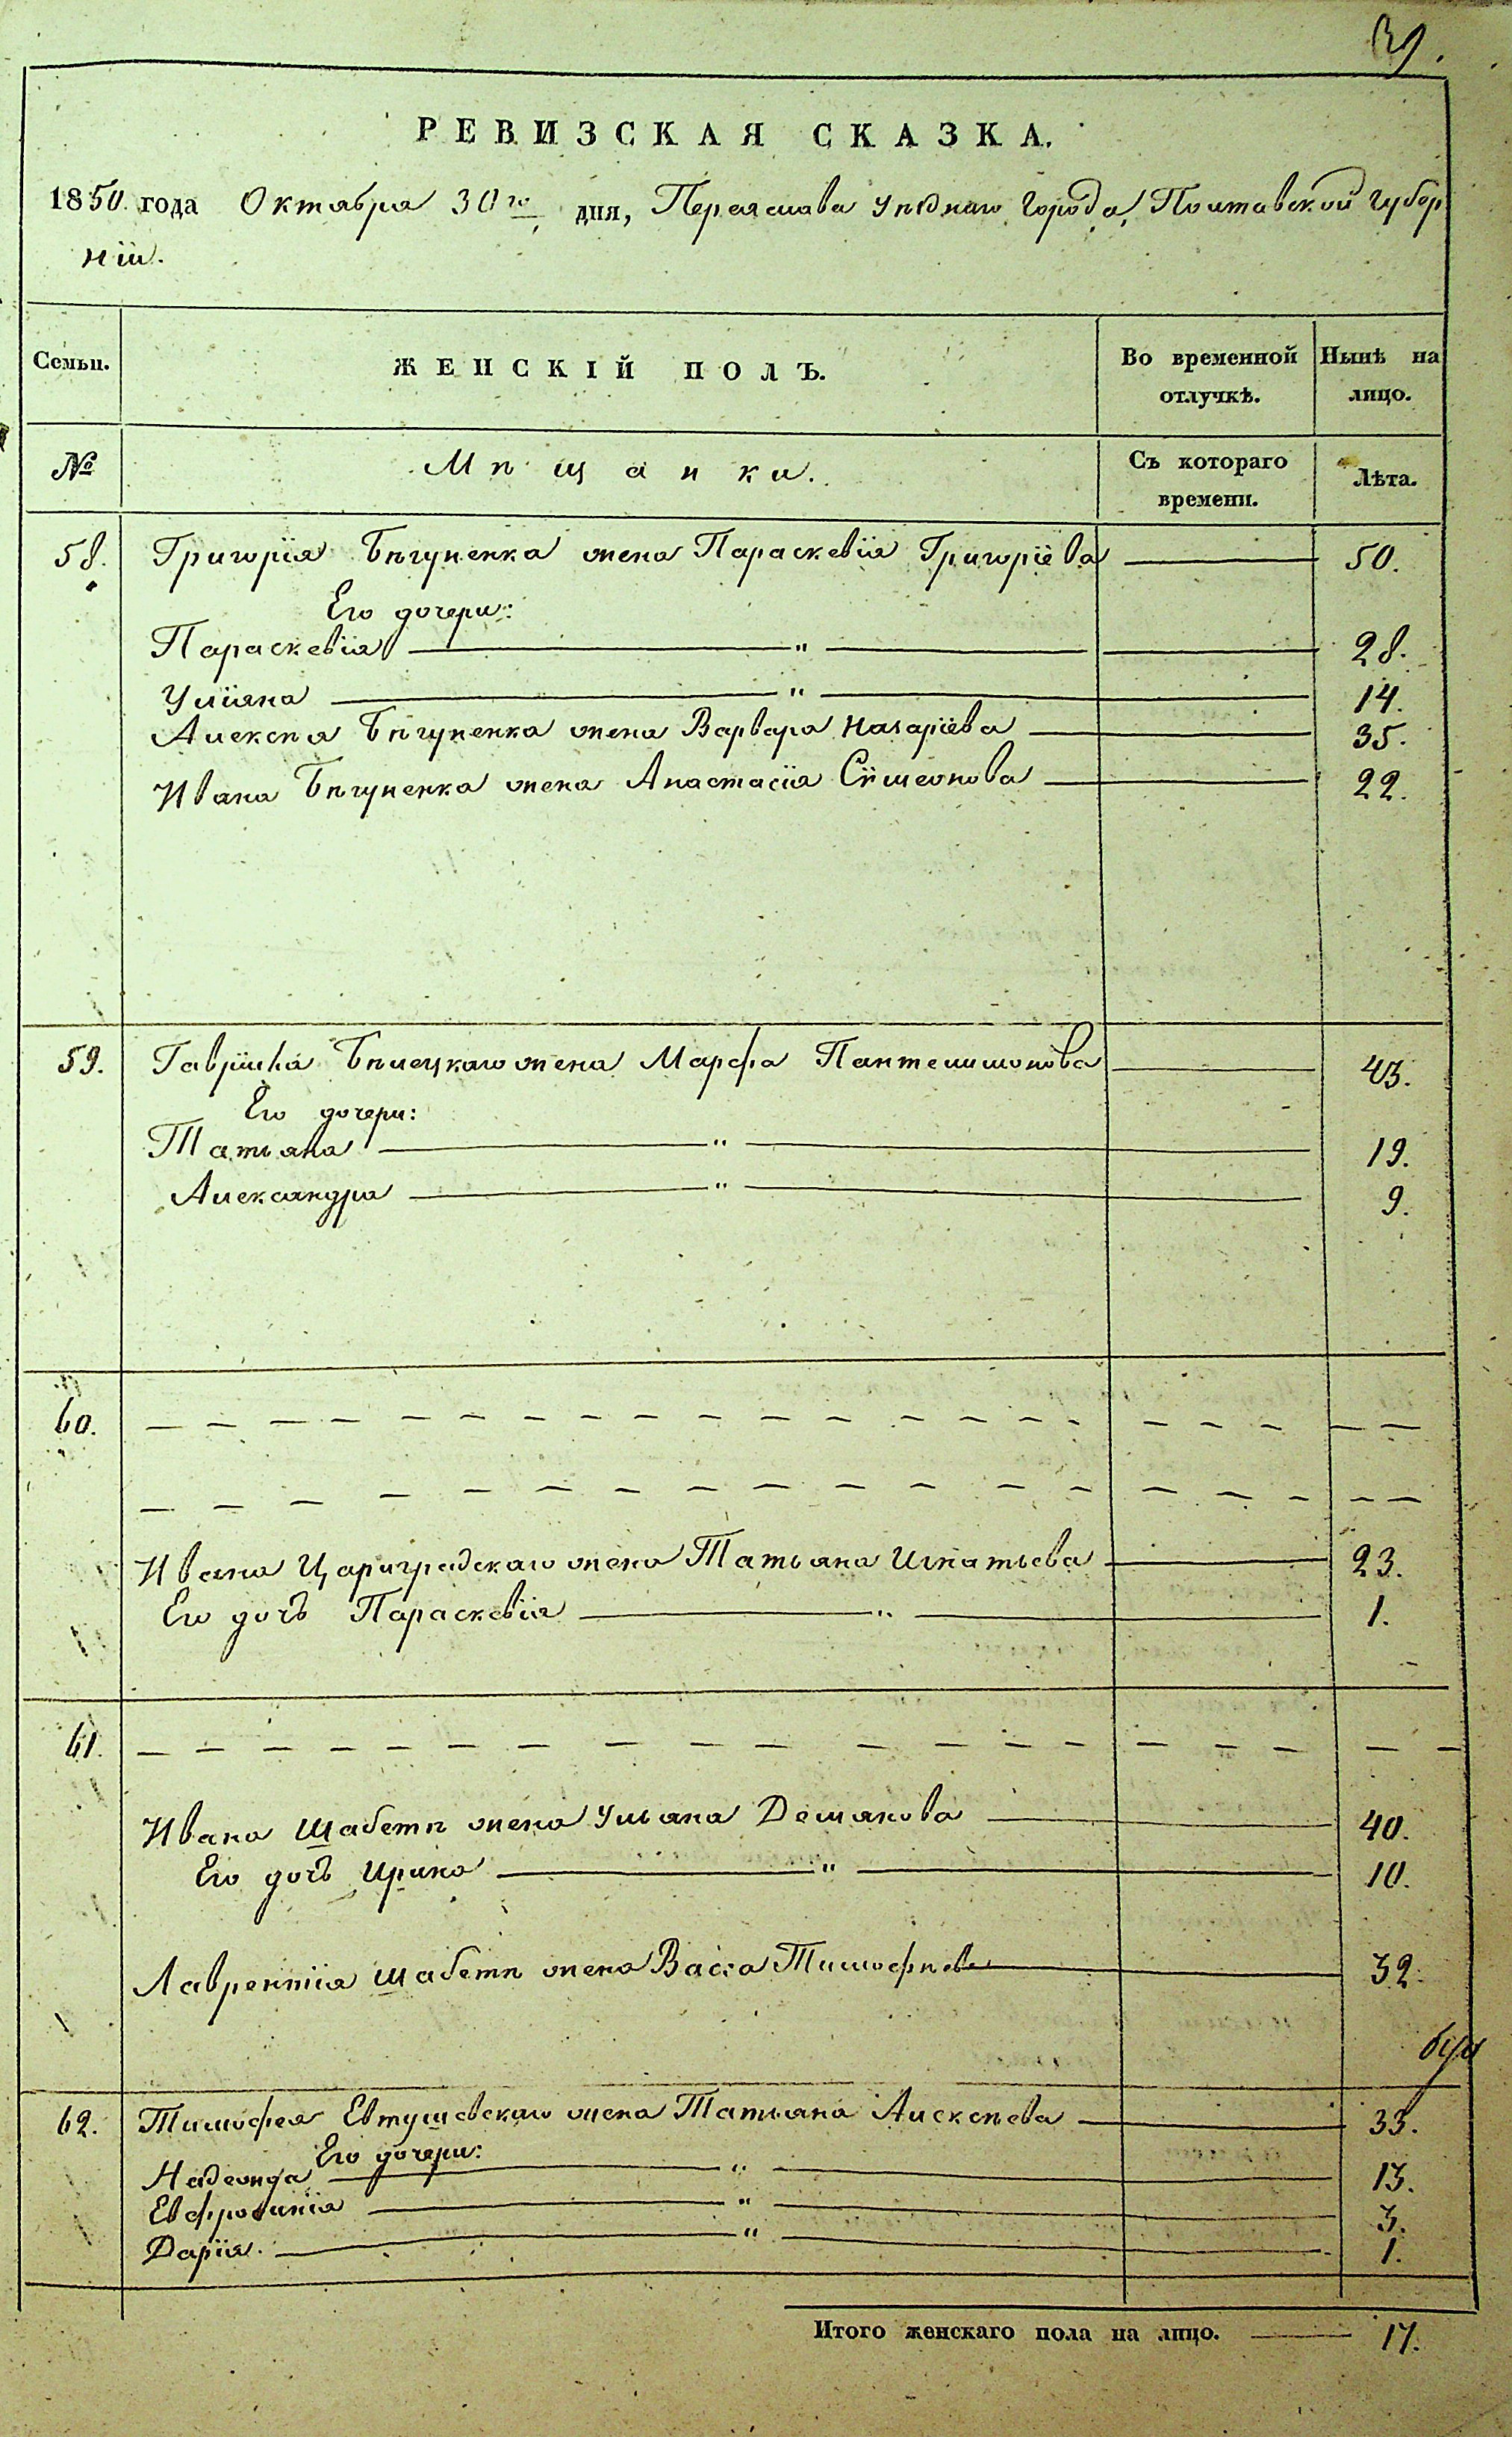 39.
РЕВИЗСКАЯ СКАЗКА.
1850 года Октября 30го дня, Переяслава уѣзднаго города, Полтавской губер
ніи.
Семьи. ЖЕНСКІЙ ПОЛЪ. Во временной отлучкѣ. Нынѣ на лицо.
№ Мѣщанки. Съ котораго времени. Лѣта.
58. Григорія Бѣгуненка жена Параскевія Григоріева 50.
Его дочери:
Параскевія " 28.
Уліяна " 14.
Алексѣя Бѣгуненка жена Варвара Назаріева 35.
Ивана Бѣгуненка жена Анастасія Сѵмеонова 22.
59. Гавріила Бѣлецкаго жена Марфа Пантелимонова 43.
Его дочери:
Татьяна " 19.
Александра " 9.
60.
Ивана Цариградскаго жена Татьяна Игнатьева 23.
Его дочь Параскевія " 1.
61.
Ивана Шабети жена Ульяна Демянова 40.
Его дочь Ирина " 10.
Лаврентія Шабети жена Васса Тимофѣева 32.
62. Тимофея Евтушевскаго жена Татьяна Алексѣева 33.
Его дочери:
Надежда " 13.
Евфросинія " 3.
Дарія " 1.
Итого женскаго пола на лицо. 17.